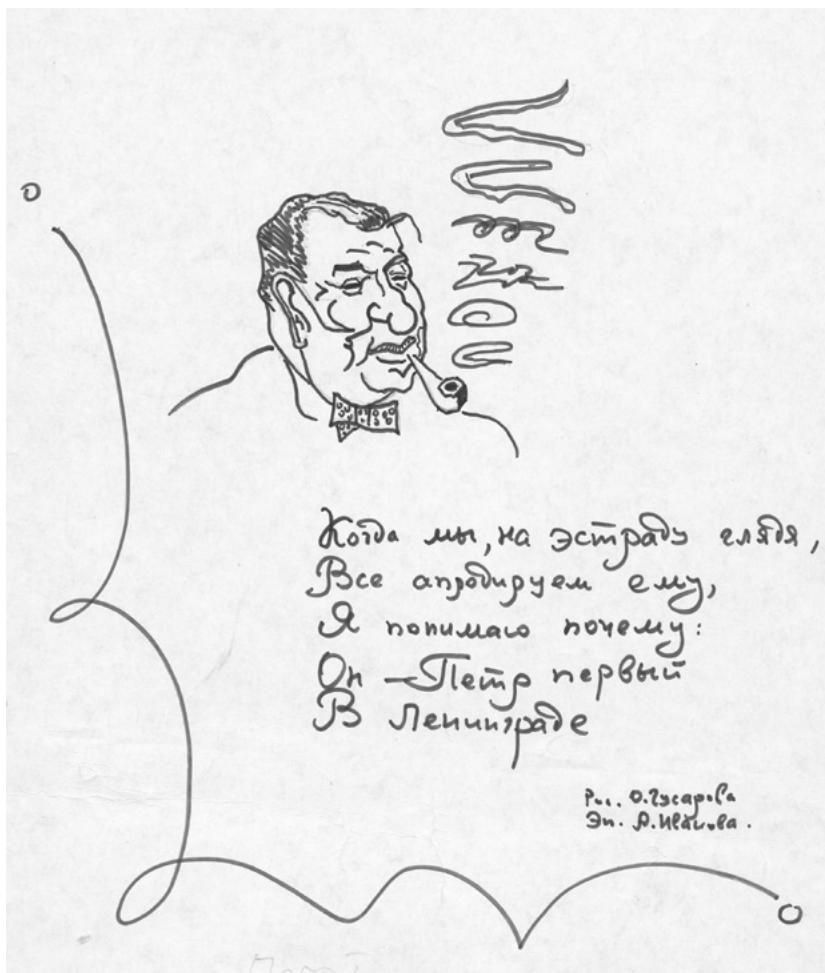 Когда мы, на эстраду глядя,
Все аплодируем ему,
Я понимаю почему:
Он — Петр первый
В Ленинграде
Рис. О.Гусарова
Эп. А.Иванова.